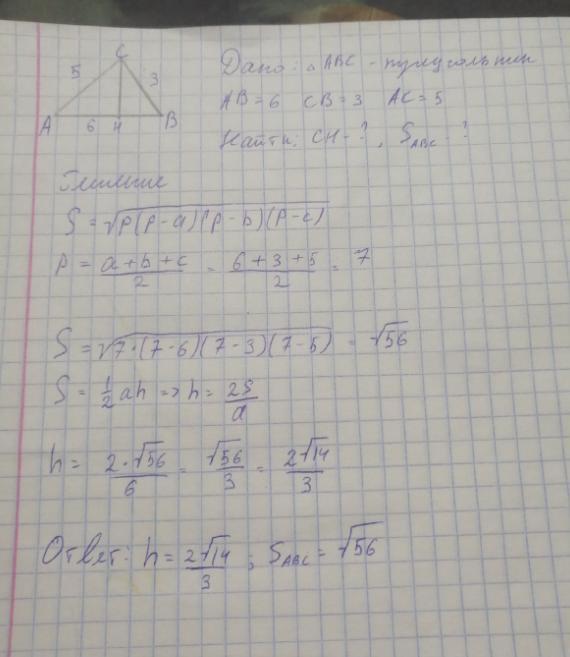 C
5 3
A 6 H B
Дано: △ABC - треугольник
AB = 6 CB = 3 AC = 5
Найти: CH - ?, S_ABC - ?
Решение
S = √(p(p-a)(p-b)(p-c))
P = (a+b+c)/2 = (6+3+5)/2 = 7
S = √(7·(7-6)(7-3)(7-5)) = √56
S = 1/2 ah => h = 2S/a
h = (2·√56)/6 = √56/3 = 2√14/3
Ответ: h = 2√14/3 ; S_ABC = √56